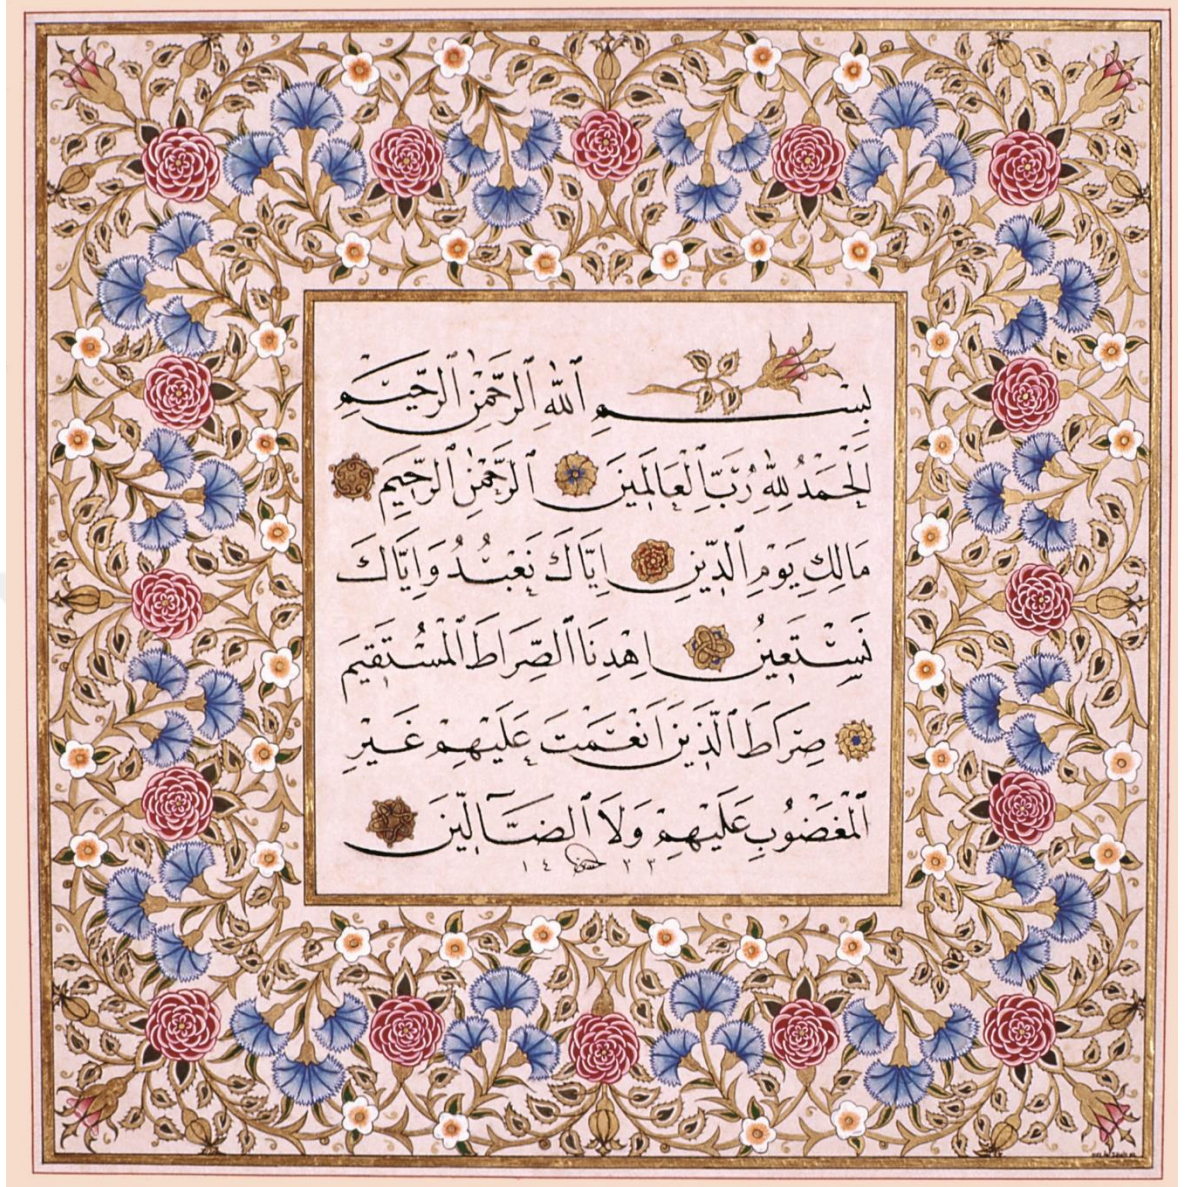 بِسْمِ ٱللّٰهِ ٱلرَّحْمٰنِ ٱلرَّحِيمِ
اَلْحَمْدُ لِلّٰهِ رَبِّ ٱلْعَالَمِينَ ٱلرَّحْمٰنِ ٱلرَّحِيمِ
مَالِكِ يَوْمِ ٱلدِّينِ اِيَّاكَ نَعْبُدُ وَاِيَّاكَ
نَسْتَعِينُ اِهْدِنَا ٱلصِّرَاطَ ٱلْمُسْتَقِيمَ
صِرَاطَ ٱلَّذِينَ اَنْعَمْتَ عَلَيْهِمْ غَيْرِ
ٱلْمَغْضُوبِ عَلَيْهِمْ وَلَا ٱلضَّٓالِّينَ